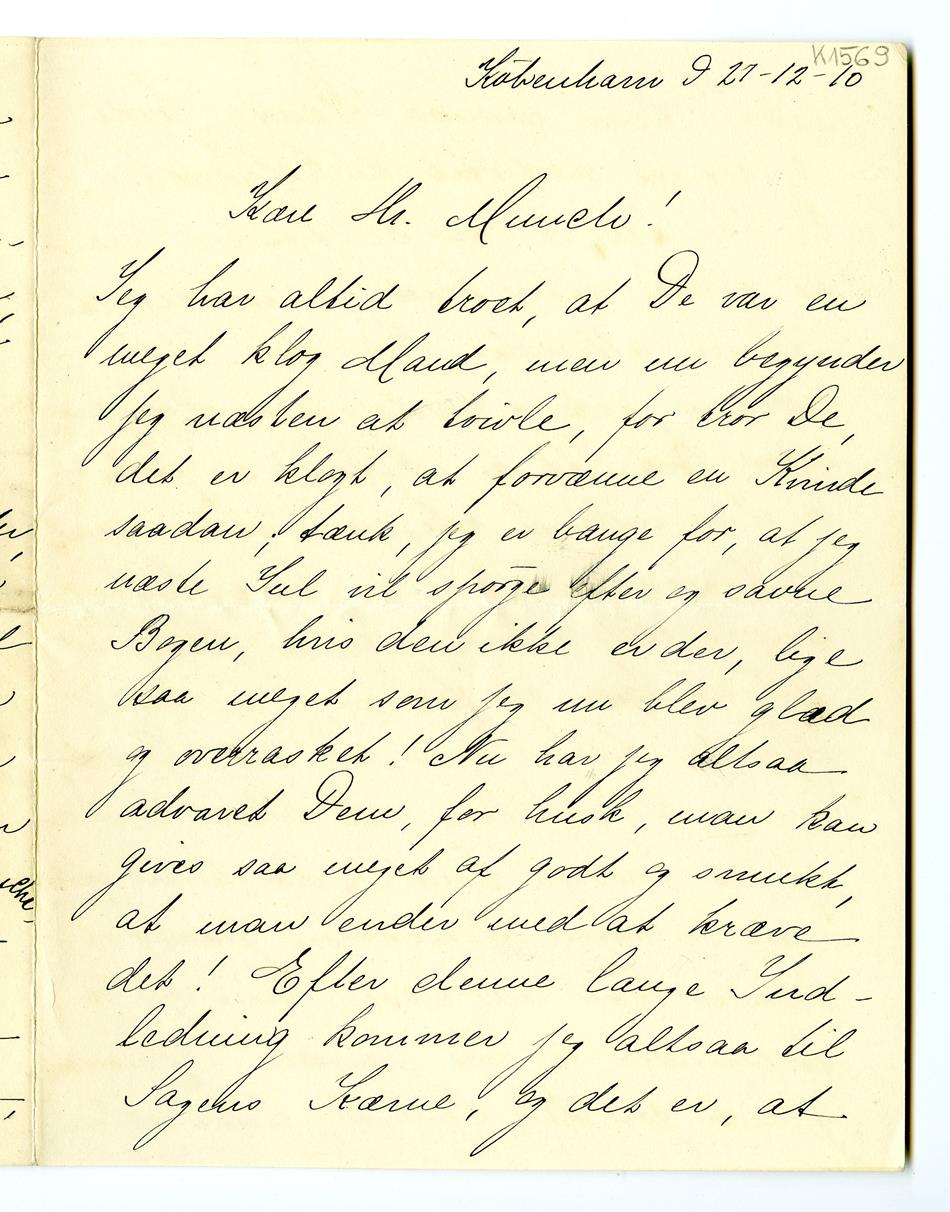 K1569
København d 27-12-10
Kære Hr. Munch!
Jeg har altid troet, at De var en
meget klog Mand, men nu begynder
jeg næsten at tvivle, for tror De,
det er klogt, at forvænne en Kvinde
saadan; tænk, jeg er bange for, at jeg
næste Jul vil spørge efter og savne
Bogen, hvis den ikke er der, lige
saa meget som jeg nu blev glad
og overrasket! Nu har jeg altsaa
advaret Dem, for husk, man kan
gives saa meget af godt og smukt,
at man ender med at kræve
det! Efter denne lange Ind-
ledning kommer jeg altsaa til
Sagens Kærne, og det er, at